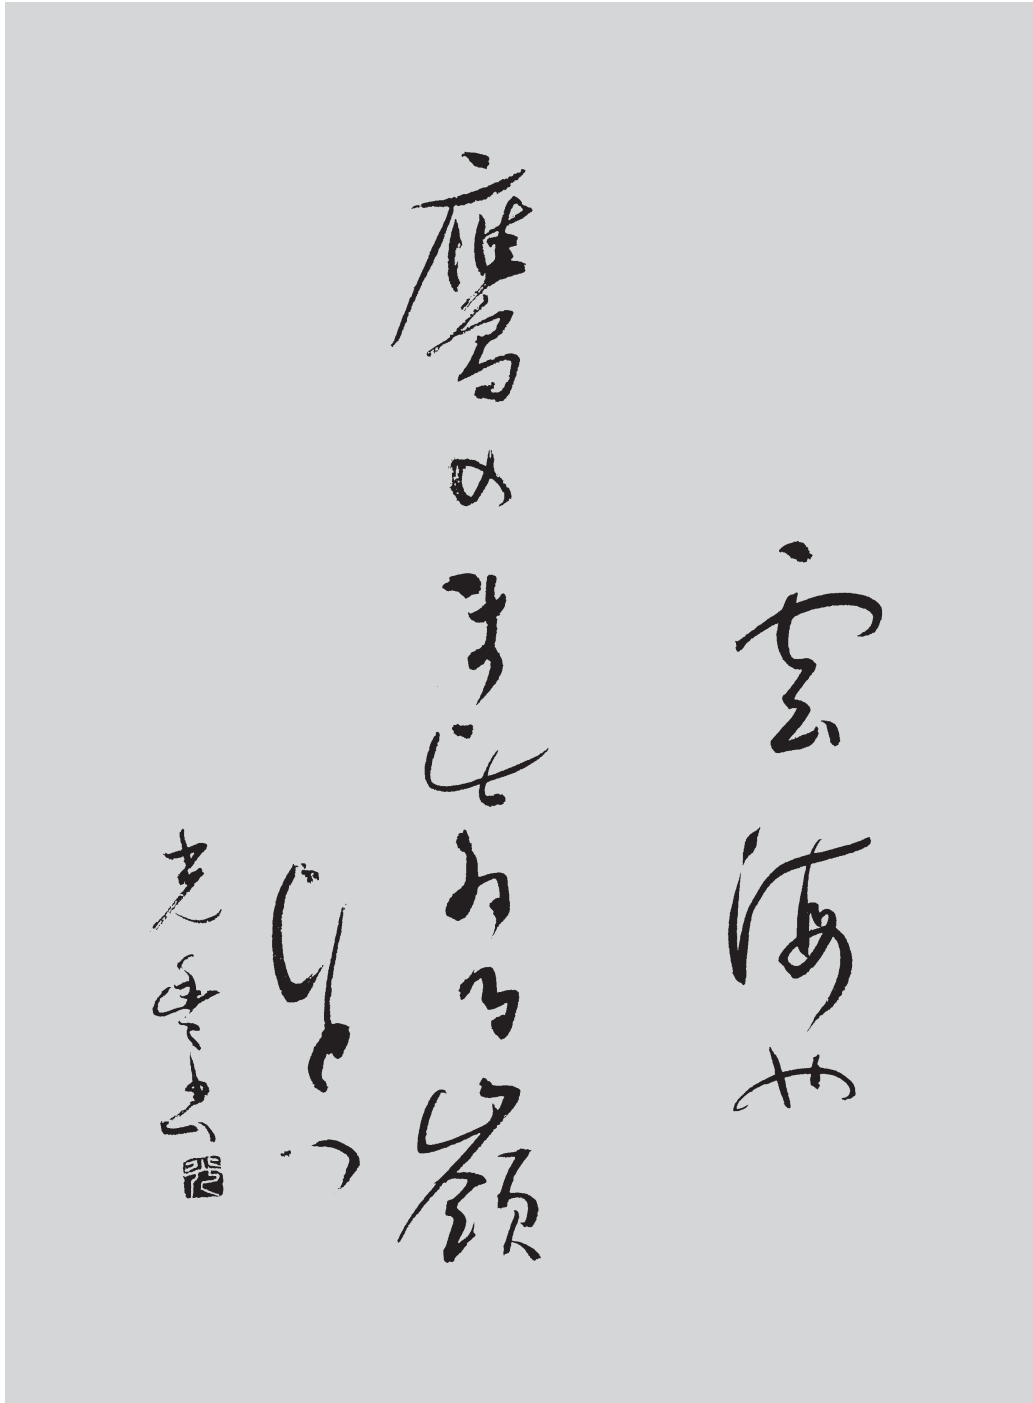 雲海や
鷹のまひゐる嶺
ひとつ
光書